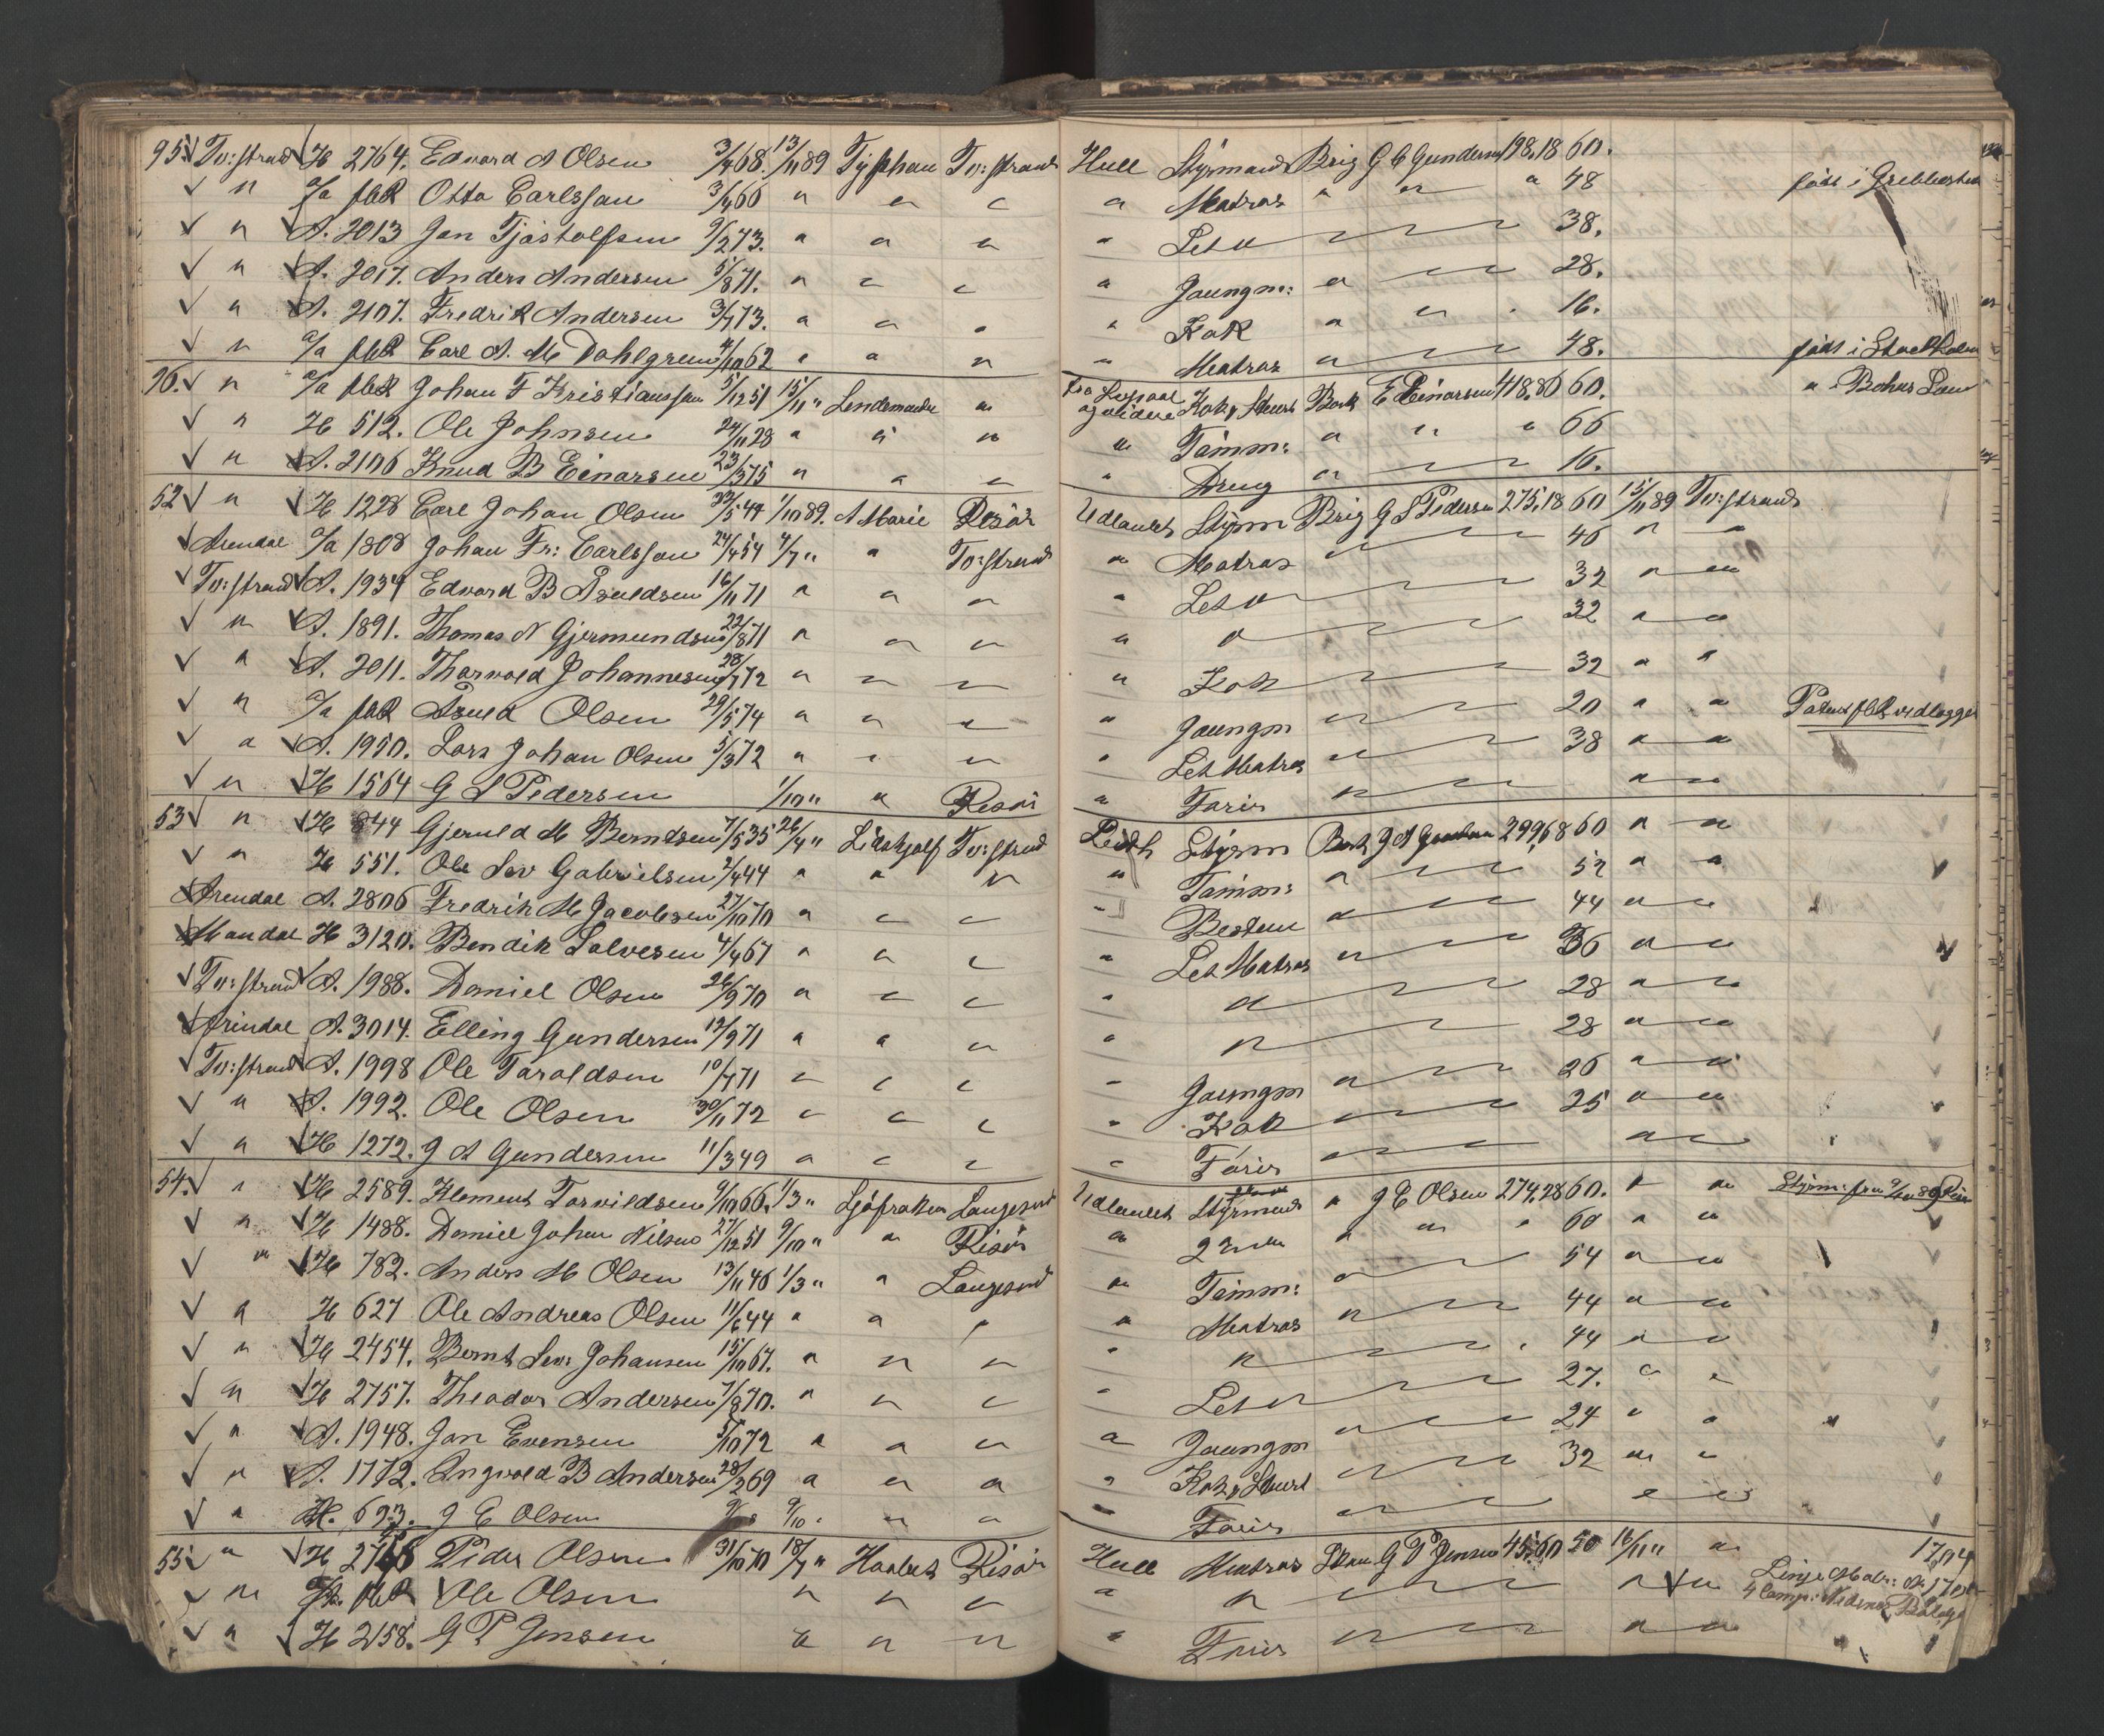 95. Tv:strand H 2764. Edvard A Olsen 3/4 68. 13/11 89 Typhon Tv:strand Hull Styrmand Brig G C Gundersen 198.18 60.
" a/a fbR Otto Carlsson 3/4 66 " " " " Matros " " " 48 født i Grebbestad
" A. 2013 Jan Tjøstolfsen 9/2 73. " " " " Let " 38.
" A. 2017. Anders Andersen 5/8 71. " " " " Jungm: " 28.
" A. 2107. Fredrik Andersen 3/7 73. " " " " Kok " " " 16.
" a/a fbR Carl A. M Dahlgren 4/10 62 " " " " Matros " 48. født i Stockholm
96. " a/a fbR Johan F Kristiansson 5/12 51 15/11 " " fra og videre Kok & Stuert Bark E Einarsen 418.80 60. " i Bohus Len
" H 512. Ole Johnsen 24/11 28 " " " " Tømm: " " " 66
" A. 2106 Knud B Einarsen 23/3 75 " " " " Dreng " 16.
52 " H 1228 Carl Johan Olsen 5 44 1/10 89. A Marie Risør Udlandet Styrm Brig G S Pedersen 275.18 60 15/11 89 Tv:strand
Arendal a/a 1808 Johan Fr: Carlsson 24/4 54 4/7 " " Tv:strand " Matros 46 " "
Tv:strand A. 1934 Edvard B Asuldsen 16/11 71 " " " " Let " 32 " "
" A. 1891. Thomas N Gjermundsen 22/8 71 " " " " " 32 " "
" A. 2011. Thorvald Johannesen 28/7 72 " " " " Kok 32 " "
" a/a fbR Asuld Olsen 29/5 74 " " " " Jungm 20 " " Patent fbR vedlagges
" A. 1950. Lars Johan Olsen 5/3 72 " " " " Let Matros 38 " "
" H 1564 G S Pedersen 1/10 " " Risør " Fører " "
53 " H 844 Gjeruld M Berntsen 7/5 35 26/4 " Lidskjalf Tv:strand Leith Styrm Bark J A Gundersen 299,68 60 " "
" H 551. Ole Sev Gabrielsen 2/4 44 " " " " Tømm: " 52 " "
Arendal A. 2806 Fredrik M Jacobsen 27/10 70 " " " " Bestm 44 " "
Mandal H 3120. Bendik Salvesen 4/4 67 " " " " Let Matros 36 " "
Tv:strand A. 1988. Daniel Olsen 26/9 70 " " " " " 28 " "
Arendal A. 3014. Elling Gundersen 12/9 71 " " " " " 28 " "
Tv:strand A. 1998 Ole Taraldsen 10/7 71 " " " " Jungm 26 " "
" A. 1992. Ole Olsen 30/11 72 " " " " Kok 25 " "
" H 1272. J A Gundersen 11/3 49 " " " " Fører " "
54. " H 2589. Klement Torvildsen 9/10 66. 1/3 " Langesund Udlandet Styrmand " J E Olsen 274,28 60. " "
" H 1488. Daniel Johan Nilsen 27/12 51 9/10 " " Risør " 2 " " " 60 " "
" H 782. Anders M Olsen 13/11 46 1/3 " " Langesund " Tømm: 54 " "
" H 627 Ole Andreas Olsen 11/6 44 " " " " Matros 44 " "
" H 2454. Bernt Sev: Johansen 15/10 67. " " " " " 44 " "
" H 2757. Theodor Andersen 7/8 70. " " " " Let " 27. " "
" A. 1948. Jan Evensen 5/10 72 " " " " Jungm 24 " "
" A. 1772. Angvald B Andersen 28/2 69 " " " " Kok & Stuert 32 " "
" H. 693. J E Olsen 9/10 " " " Fører " "
55 " H Peder Olsen 31/10 70 18/7 " Haabet Risør Hull Matros Skon G P Jensen 45,60 50 16/11 " "
" fbR Ole Olsen " " " " " " "
" H 2158. G P Jensen " " " " Fører " "